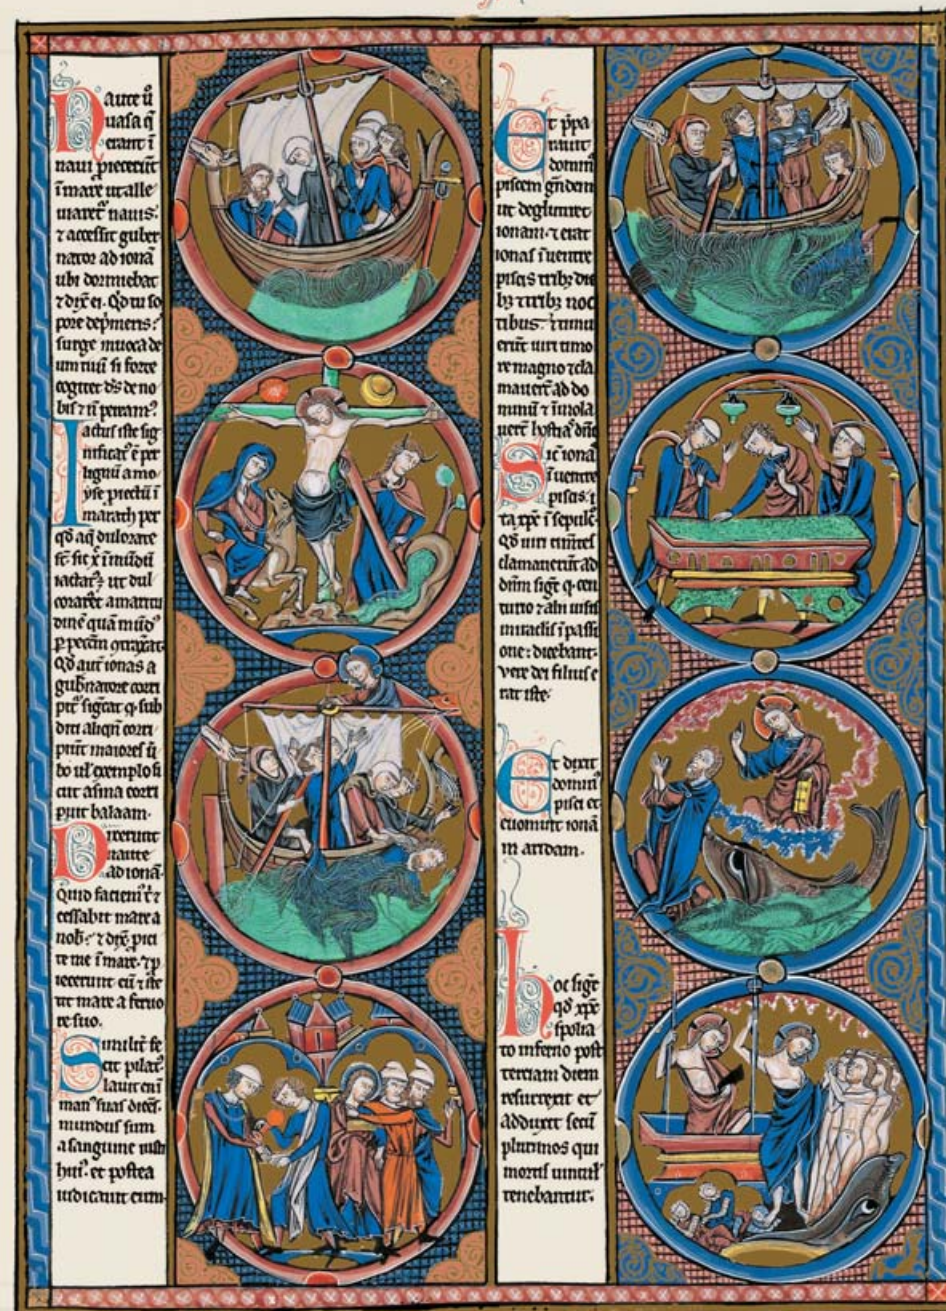 Naute ũ
uasa q̃
erant ĩ
naui piecerũt
ĩ mare ut alle
uiaret᷑ nauis.
⁊ accessit guber
nator ad ionã
ubi dormiebat
⁊ dix̃ ei. Qd̃ tu so
pore dep̃meris?
surge inuoca de
um tuũ si forte
cogitet ds̃ de no
bis ⁊ ñ pereamꝰ
Iactus iste sig
nificat᷑ ẽ per
lignũ a mo
yse proiectũ ĩ
marath per
qd̃ aq̃ dulcorate
sũt sic x̃ ĩ mũdũ
iactat᷑ ut dul
coraret amaritu
dinẽ quã mũdꝰ
ꝑ peccm̃
Qd̃ aut̃ ionas a
gub̃natore corri
pit᷑ sig̃cat q̃ sub
diti aliqñ corri
piũt maiores ũ
bo ul̃ exemplo si
cut asina corri
puit balaam.
Dixerunt
naute
ad ionã
Quid faciemꝰ t̃ ⁊
cessabit mare a
nob̃? ⁊ dix̃ proici
te me ĩ mare. ⁊ p̃
iecerunt eũ ⁊ ste
tit mare a feruo
re suo.
Similit̃ fe
cit pilatꝰ
lauit eni͂
manꝰ suas dicẽs.
mundus sum
a sanguine iusti
huiꝰ. et postea
iudicauit eum.
Et p̃pa
rauit
dominꝰ
piscem g̃ndem
ut deglutiret
ionam. ⁊ erat
ionas ĩ uentre
piscis tribꝫ die
bꝫ ⁊ tribꝫ noc
tibus. ⁊ timu
erũt uiri timo
re magno ⁊ cla
mauerũt ad do
minũ ⁊ ĩmola
uerũt hostiã dñо
Sic̃ ionas
ĩ uentre
piscis. ĩ
ta xp̃c ĩ sepulc̃.
Qd̃ uiri timẽtes
clamauerũt ad
dñm sig̃t q̃ cen
turio ⁊ alii uisis
miraclis ĩ passi
one. dicebant.
uere dei filius e
rat iste.
Et dixit
dominꝰ
pisci et
euomuit ionã
in aridam.
Hoc sig̃t
qd̃ xp̃c
spolia
to inferno post
terciam diem
resurrexit et
adduxit secũ
plurimos qui
mortis uincul̃
tenebantur.